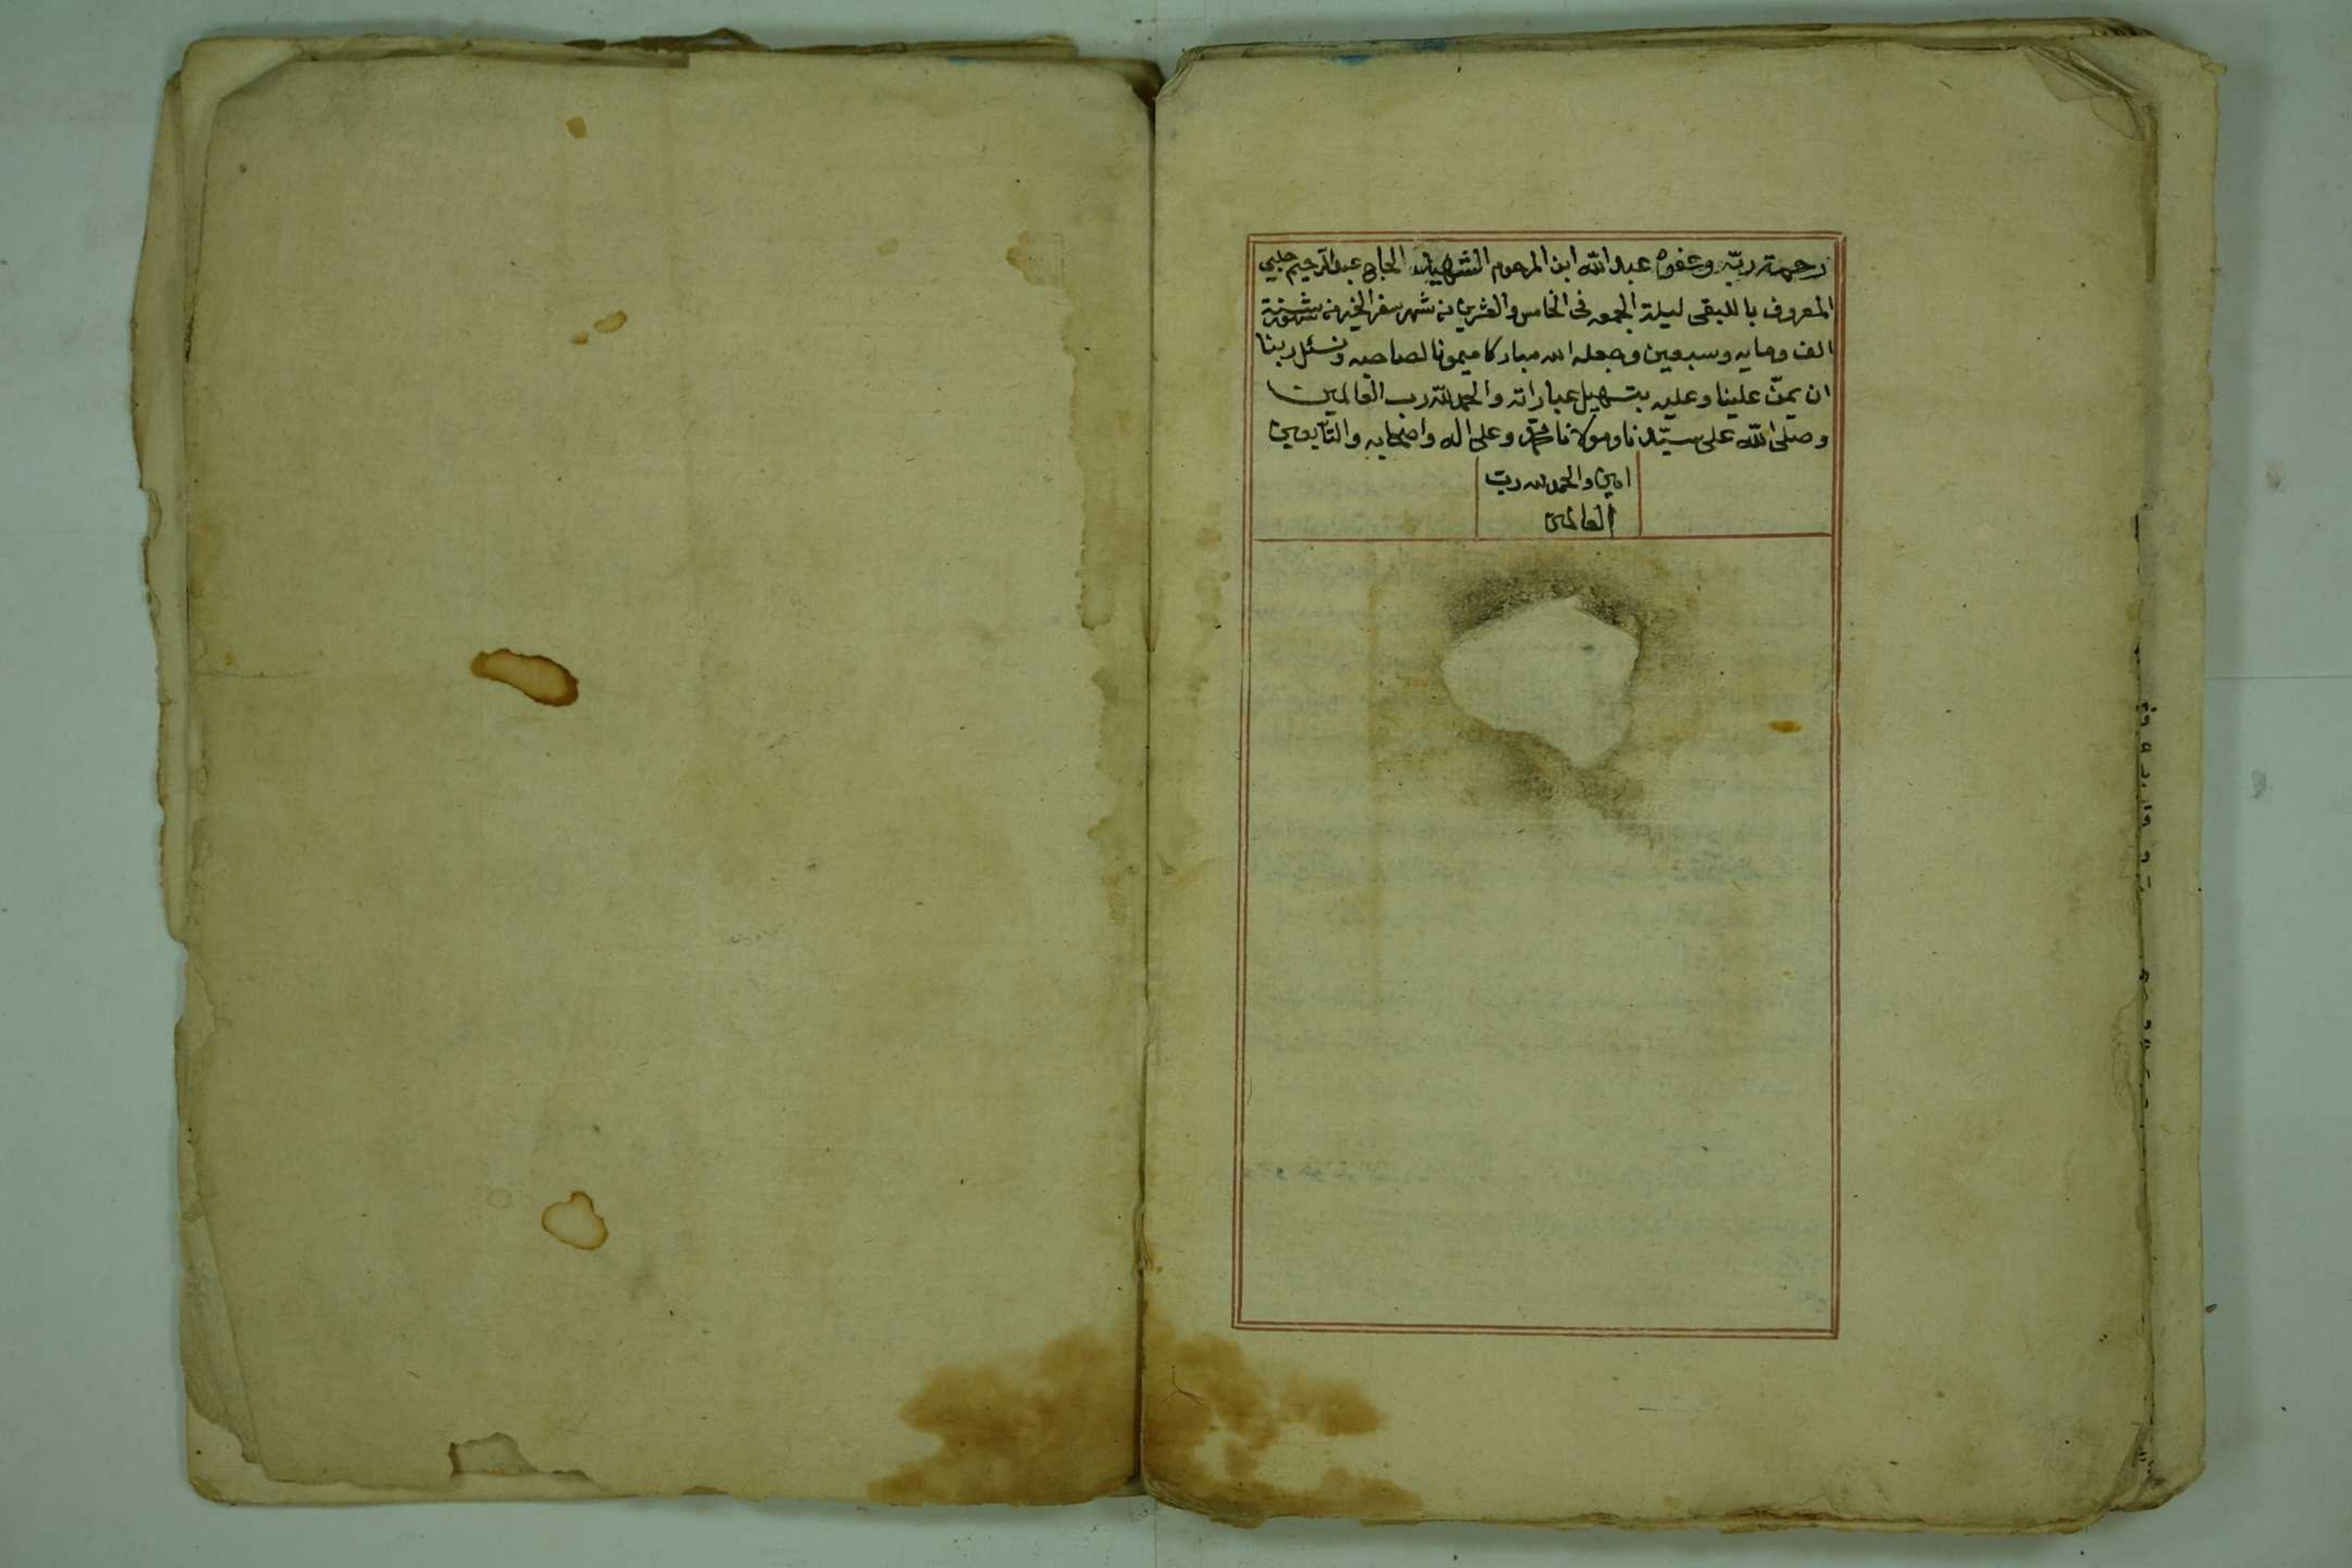 رحمة ربّه وعفوه عبد الله ابن المرحوم الشهيد الحاج عبد الرحيم جلبي
المعروف ليلة الجمعه فى الخامس والعشرين من شهر سفر الخير من شهور سنة
الف ومايه وسبعين وجعله الله مباركا ميمونا لصاحبه ونسئل ربنا
ان يمنّ علينا وعليه بتسهيل عباراته والحمد لله رب العالمين
وصلى الله على سيّدنا ومولانا محمّد وعلى اله واصحابه والتّابعين
امين والحمد لله ربّ
العالمين